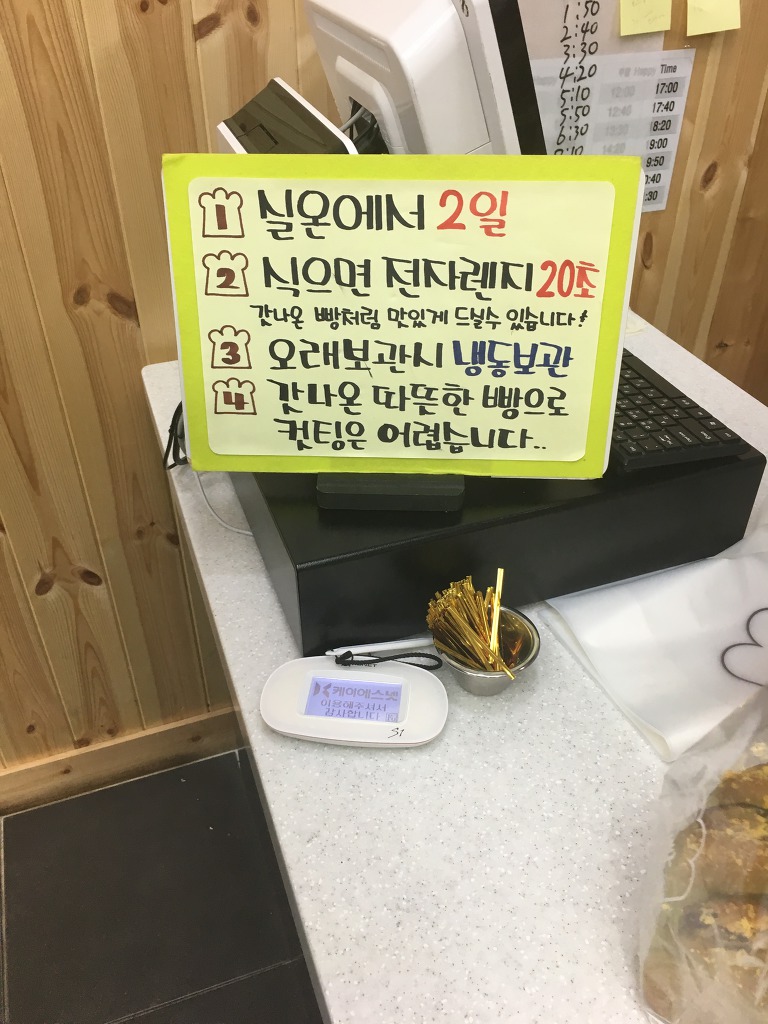 1:50
2:40
3:30
4:20
5:10
5:50
6:30
Happy Time
12:00 17:00
12:40 17:40
8:20
9:00
9:50
1 실온에서 2일
2 식으면 전자렌지 20초
갓나온 빵처럼 맛있게 드실수 있습니다!
3 오래보관시 냉동보관
4 갓나온 따뜻한 빵으로
컷팅은 어렵습니다..
케이에스넷
이용해주셔서
감사합니다